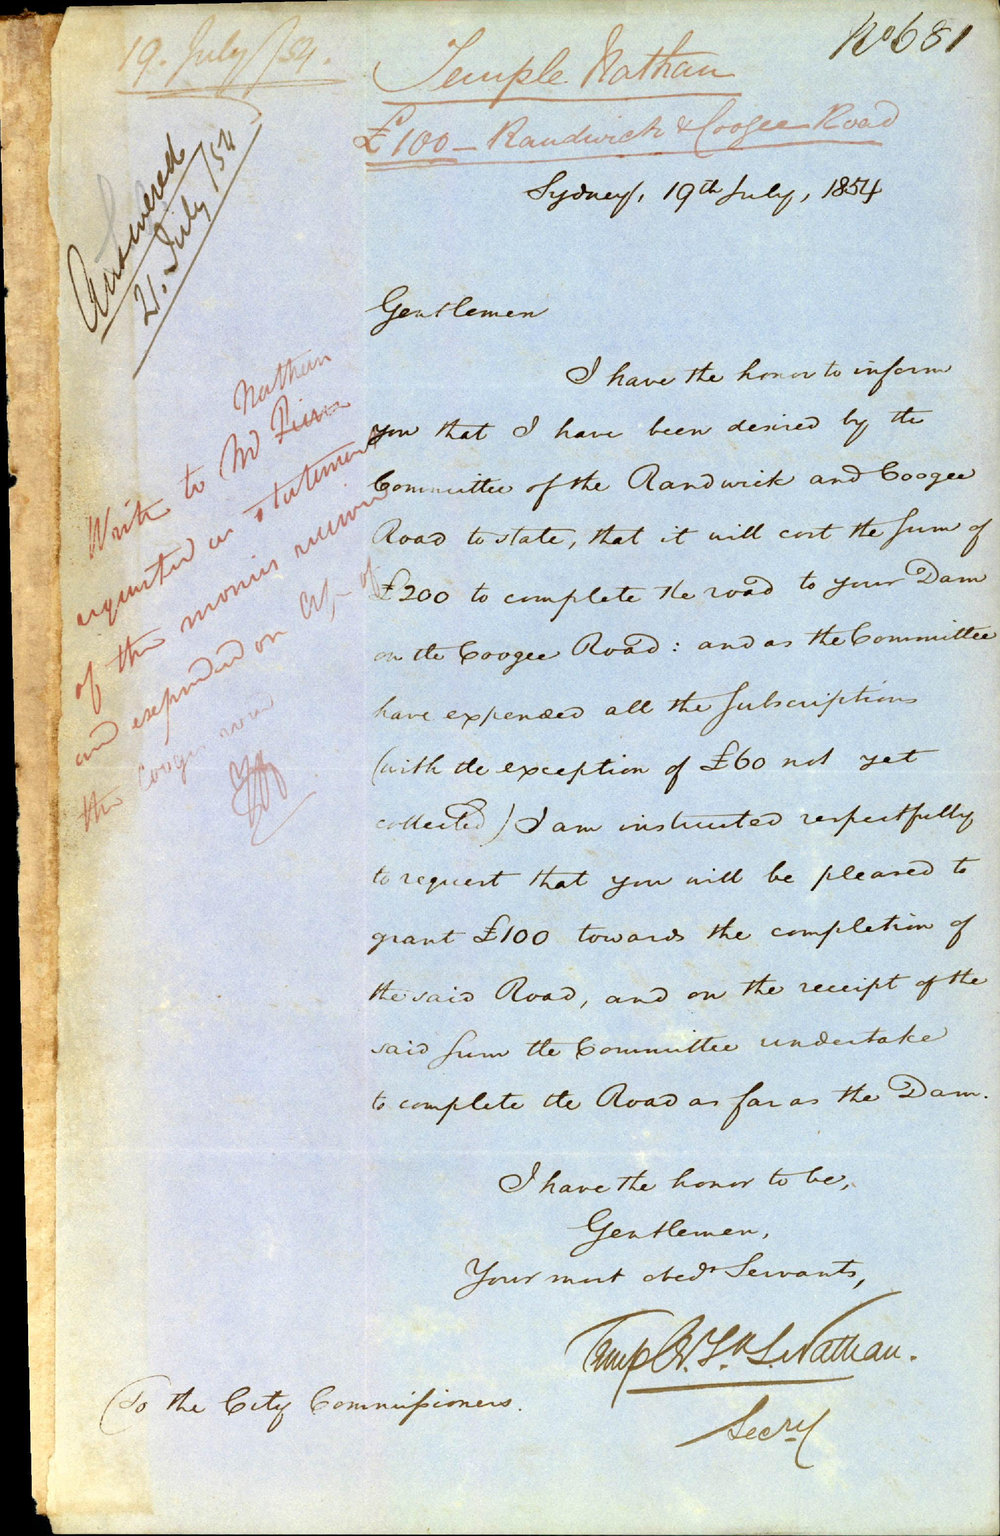 No 681
19. July /54.
Temple Nathan
£100 - Randwick & Coogee Road
Answered
21. July /54
Sydney, 19th July, 1854
Gentlemen
I have the honor to inform
you that I have been desired by the
Committee of the Randwick and Coogee
Road to state, that it will cost the sum of
£200 to complete the road to your Dam
on the Coogee Road: and as the Committee
have expended all the subscriptions
(with the exception of £60 not yet
collected) I am instructed respectfully
to request that you will be pleased to
grant £100 towards the completion of
the said Road, and on the receipt of the
said sum the Committee undertake
to complete the Road as far as the Dam.
I have the honor to be,
Gentlemen,
Your most obedt Servants,
Nathan.
Secry
To the City Commissioners.
Nathan
Write to Mr
a statement
of the monies
and expended on
the Coogee road